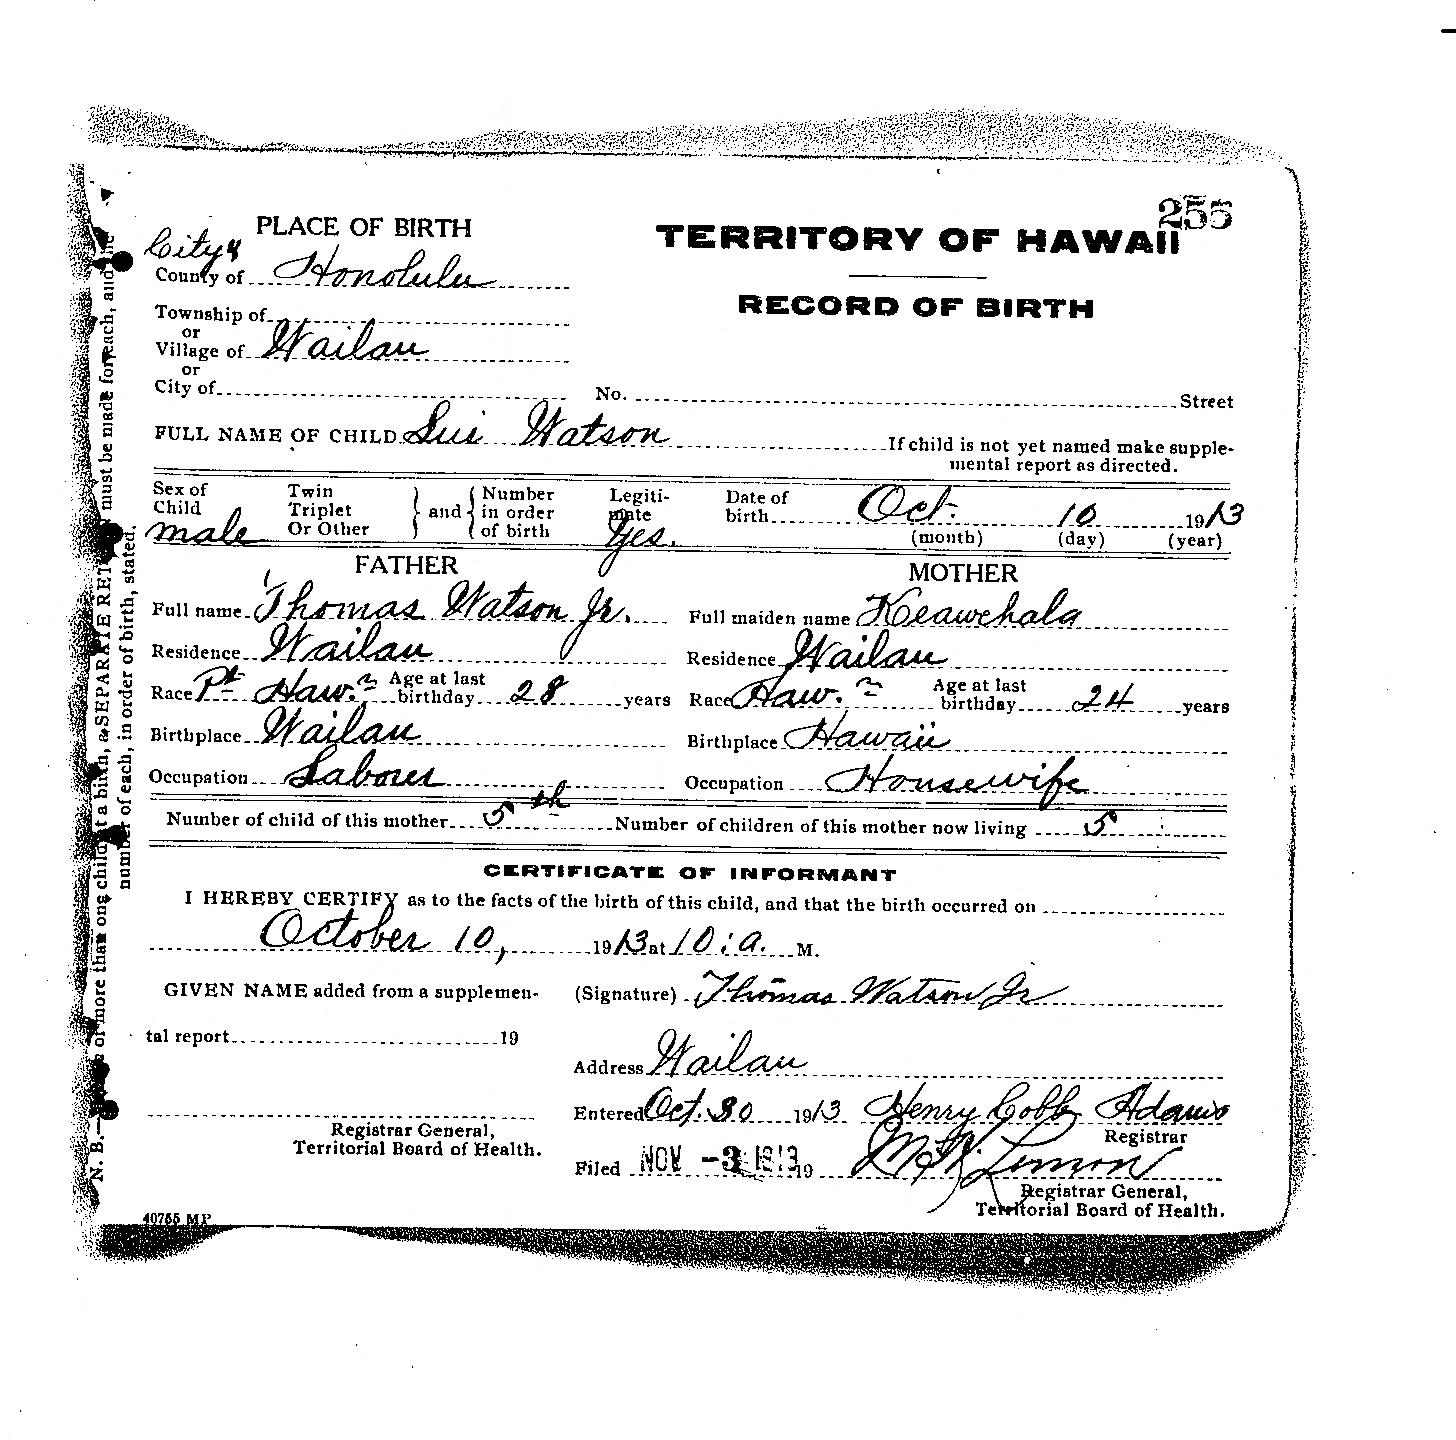 255
PLACE OF BIRTH
TERRITORY OF HAWAII
City &
County of Honolulu
RECORD OF BIRTH
Township of
or
Village of Wailau
or
City of
No. Street
FULL NAME OF CHILD Sui Watson If child is not yet named make supple-
mental report as directed.
Sex of Child male Twin Triplet Or Other } and { Number in order of birth Legiti-mate Yes. Date of birth Oct. 10 1913
(month) (day) (year)
FATHER
MOTHER
Full name Thomas Watson Jr. Full maiden name Keawehala
Residence Wailau Residence Wailau
Race Pt Haw.n Age at last birthday 28 years Race Haw.n Age at last birthday 24 years
Birthplace Wailau Birthplace Hawaii
Occupation Laborer Occupation Housewife
Number of child of this mother 5th Number of children of this mother now living 5
CERTIFICATE OF INFORMANT
I HEREBY CERTIFY as to the facts of the birth of this child, and that the birth occurred on
October 10, 1913 at 10:a. M.
GIVEN NAME added from a supplemen- (Signature) Thomas Watson Jr
tal report 19
Address Wailau
Entered Oct. 30 1913 Henry Cobb Adams
Registrar General, Registrar
Territorial Board of Health.
Filed NOV -3 1913 19 Lemon
Registrar General,
Territorial Board of Health.
40755 MP
N. B.— of more than one child at a birth, a SEPARATE RETURN must be made for each, and the
number of each, in order of birth, stated.